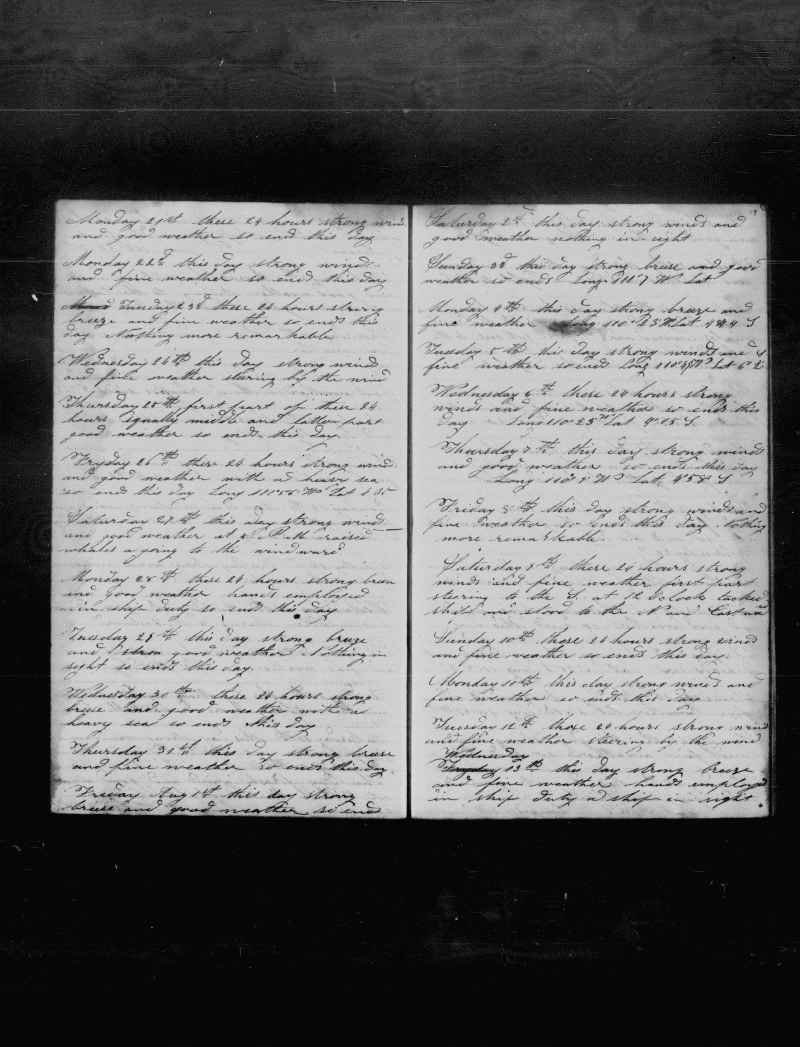 Monday 21st these 24 hours strong wind
and good weather so end this day
Monday 22d this day strong wind
and fine weather so end this day
Tuesday 23d these 24 hours strong
breeze and fine weather so ends this
day Nothing more remarkable
Wednesday 24th this day strong wind
and fine weather stering by the wind
Thursday 25th first part of these 24
hours squally middle and latter part
good weather so ends this day
Fryday 26th these 24 hours strong wind
and good weather with a heavy sea
so ends this day Long 111°56 W Lat
Saturday 27th this day strong wind
and good weather at raised
whales a going to the windward
Monday 28th these 24 hours strong breeze
and good weather hands employed
in ship duty so end this day
Tuesday 29th this day strong breeze
and stron good weather Nothing in
sight so ends this day
Wednesday 30th these 24 hours strong
breese and good weather with a
heavy sea so ends this day
Thursday 31st this day strong breese
and fine weather so ends this day
Friday Aug 1st this day strong
breese and good weather so end
Saturday 2d this day strong winds and
good weather nothing in sight
Sunday 3d this day strong breise and good
weather so ends Long 111°7 W Lat
Monday 4th this day strong breeze and
fine weather Long 110° 23 W Lat 4°24 S
Tuesday 5th this day strong winds and
fine weather so end Long 110°35 W Lat
Wednesday 6th these 24 hours strong
winds and fine weather so ends this
day Long 110°23 W Lat 4°15 S
Thursday 7th this day strong winds
and good weather so ends this day
Long W Lat S
Friday 8th this day strong winds and
fine weather so ends this day Nothing
more remarkable
Saturday 9th these 24 hours strong
winds and fine weather first part
steering to the S. at 12 Oclock tacked
ship and stood to the N and Eastward
Sunday 10th these 24 hours strong wind
and fine weather so ends this day
Monday 11th this day strong winds and
fine weather so ends this day
Tuesday 12th these 24 hours strong wind
and fine weather steering by the wind
Wednesday
Fryday 13th this day strong breeze
and fine weather hands employed
in ship duty a ship in sight